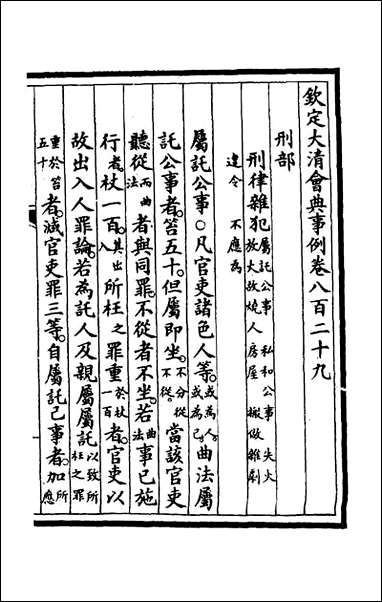 欽定大清會典事例卷八百二十九
刑部
刑律雜犯屬託公事 私和公事 失火
放火故燒人房屋 搬做雜劇
違令 不應為
屬託公事○凡官吏諸色人等或為人。或為己。曲法屬
託公事者。笞五十。但屬即坐。不分從不從。當該官吏
聽從而曲法者。與同罪。不從者不坐。若曲法事已施
行者。杖一百。其出入所枉之罪重於杖一百者。官吏以
故出入人罪論。若為託人及親屬屬託以致所枉之罪
重於笞五十者。減官吏罪三等。自屬託己事者。加所應